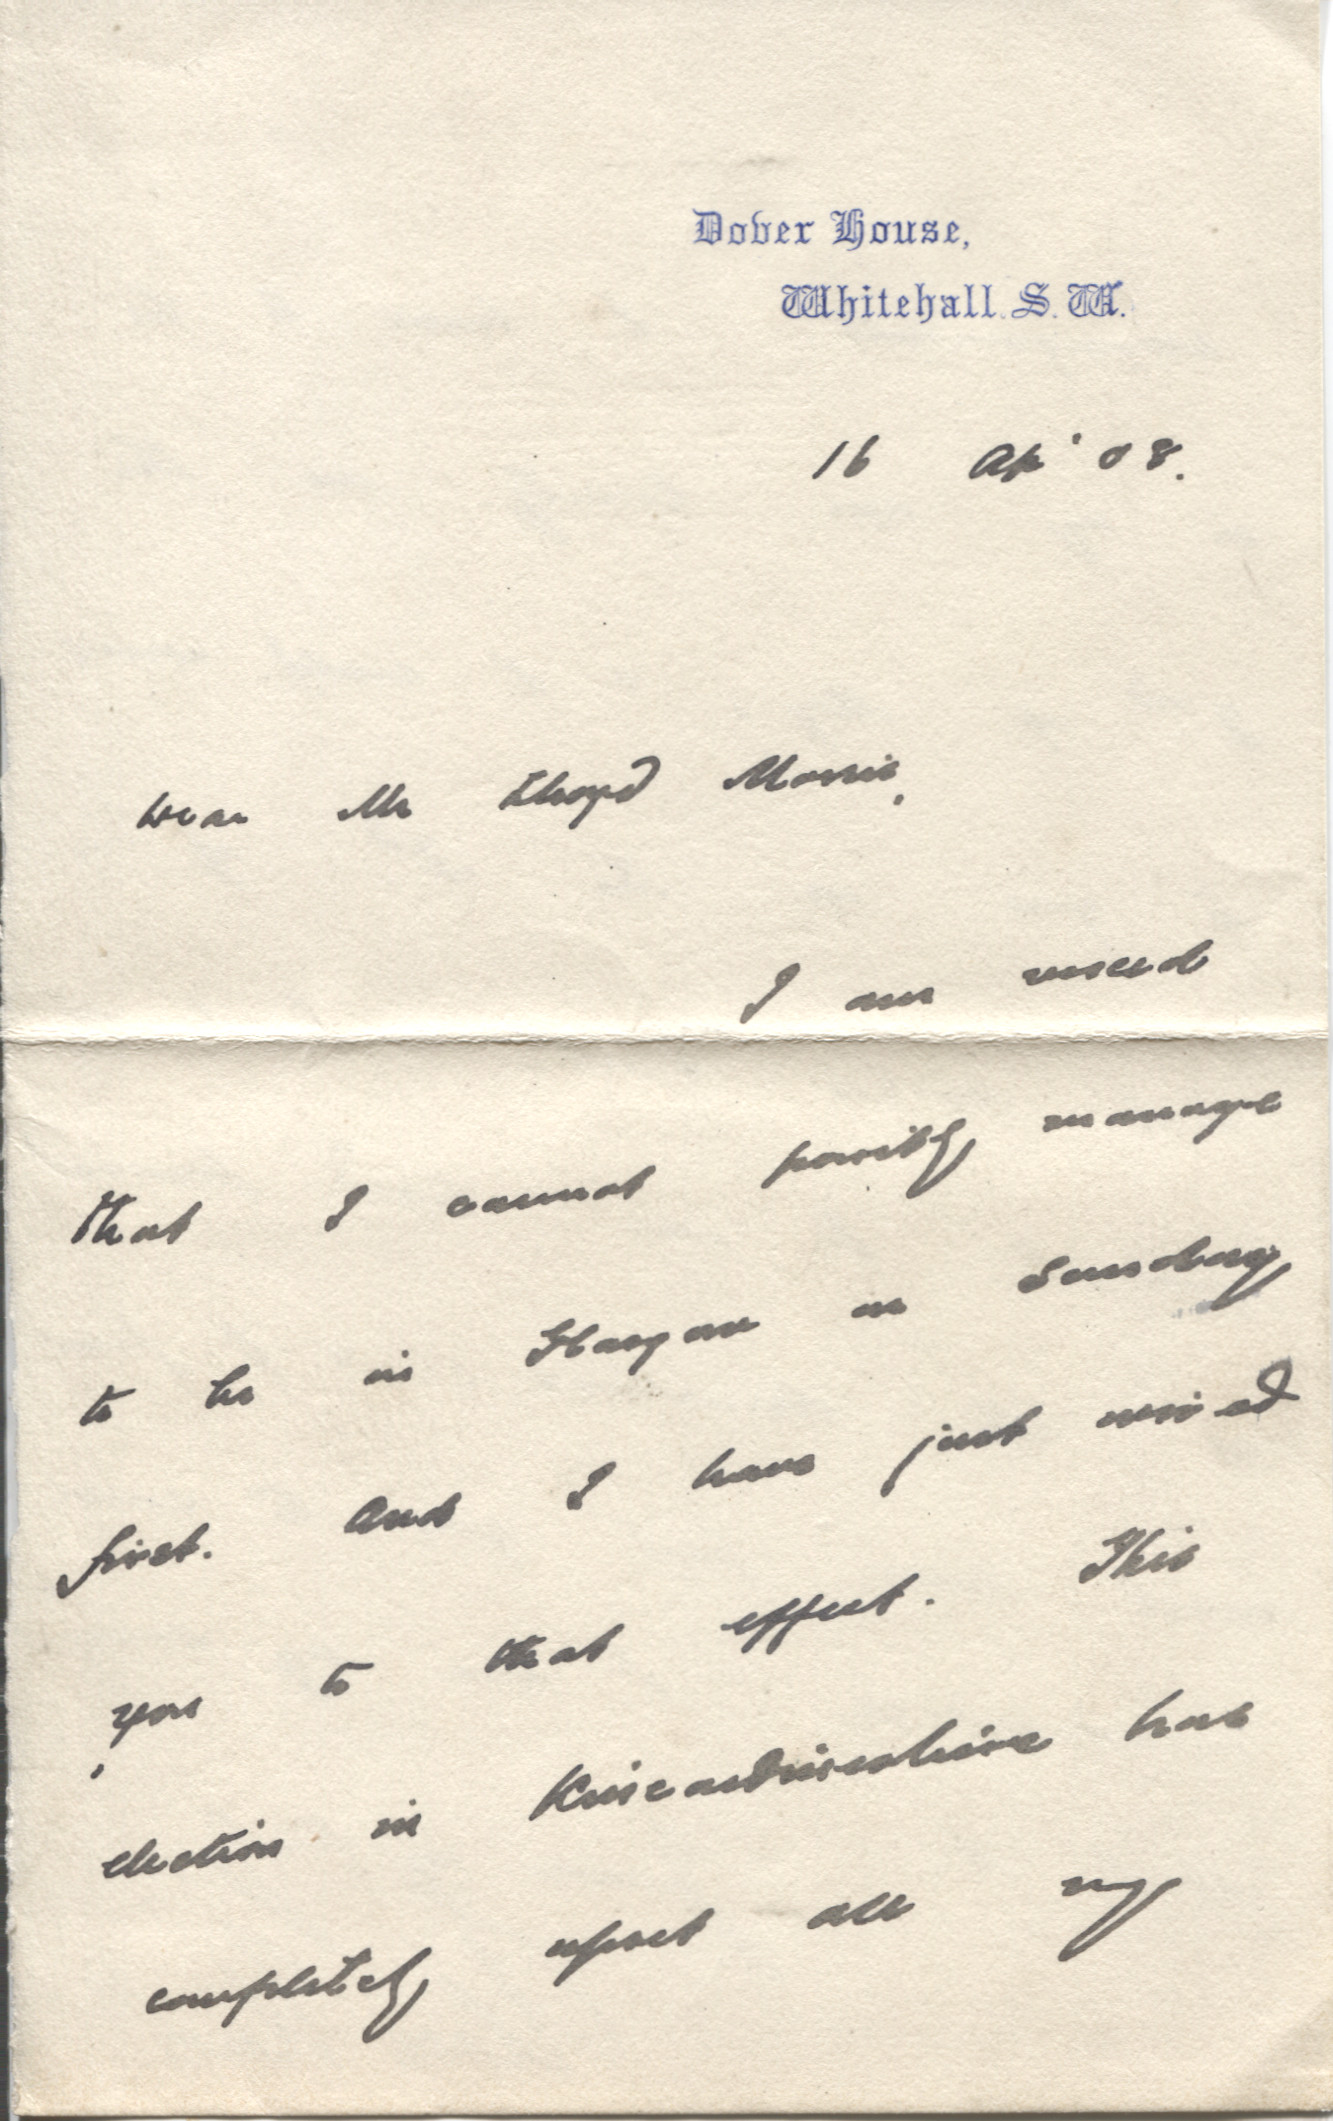 Dover House,
Whitehall. S. W.
16 Ap' 08.
Dear Mr Lloyd Morris,
I am vexed
that I cannot possibly manage
to be in Glasgow on Sunday
first. And I have just wired
you to that effect. This
election in Kincardineshire has
completely upset all my